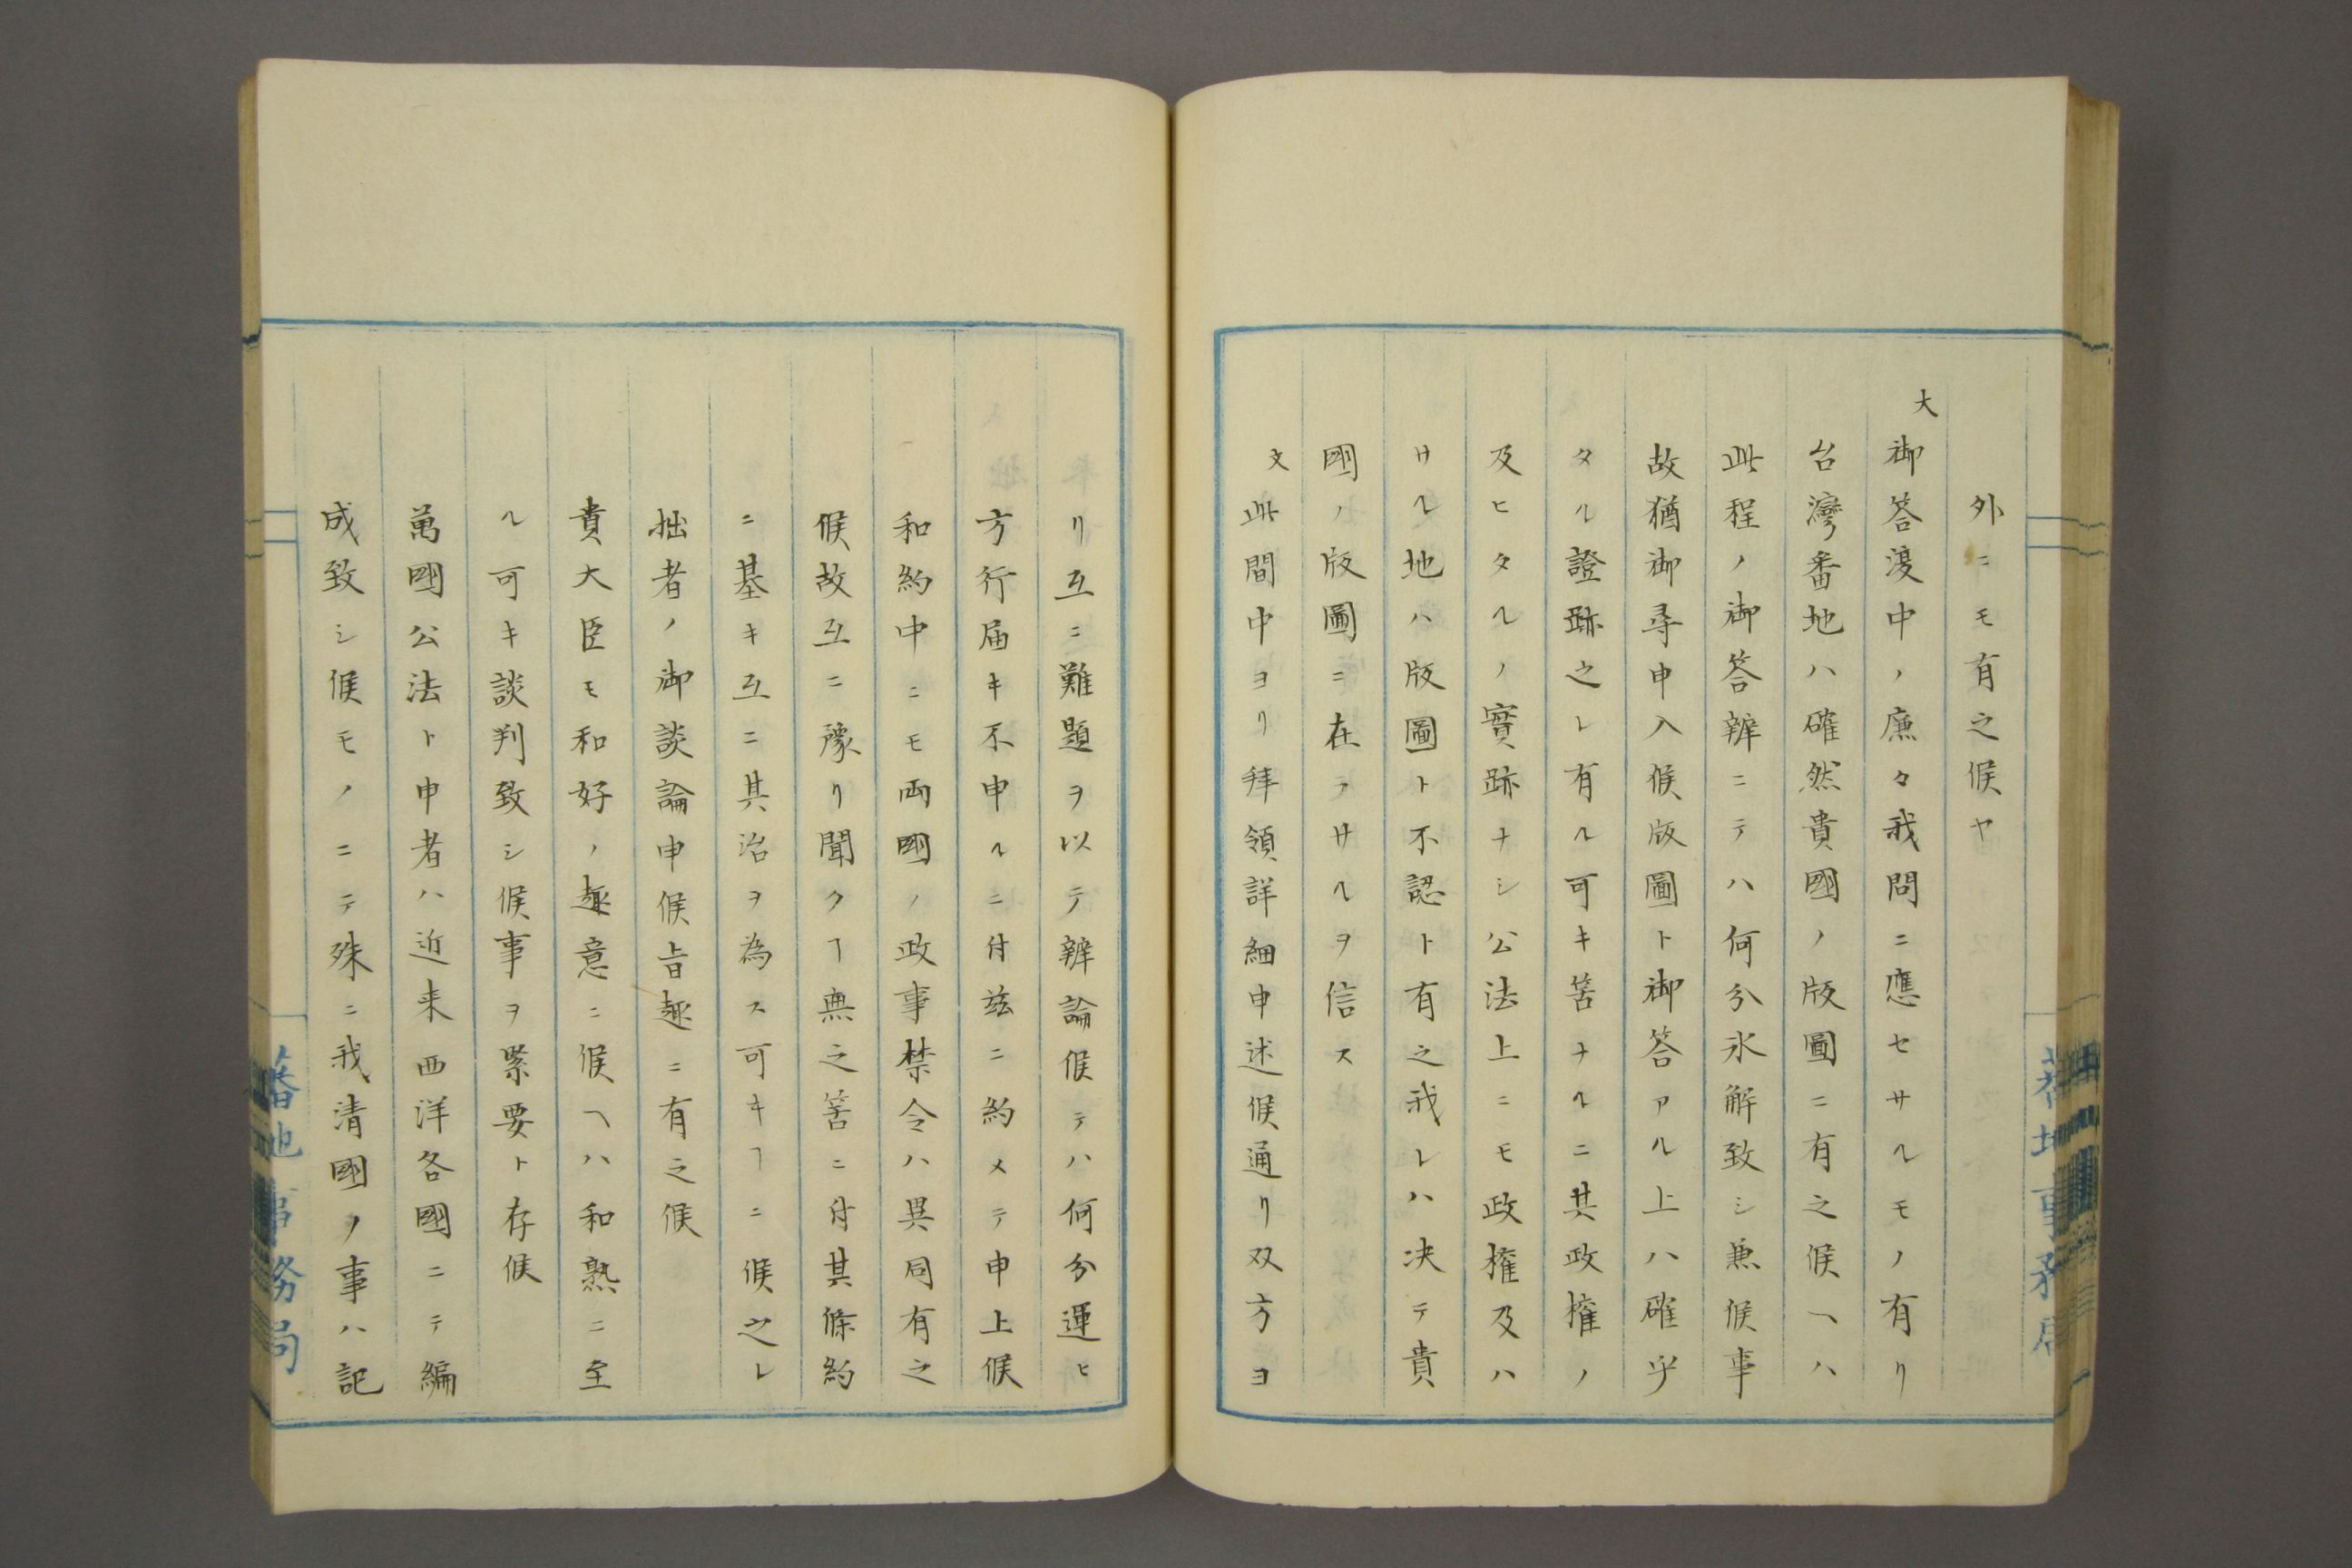 外ニモ有之候ヤ
大
御答漫中ノ廉々我問ニ應セサルモノ有リ
台灣番地ハ確然貴國ノ版圖ニ有之候ヘハ
此程ノ御答辨ニテハ何分氷解致シ兼候事
故猶御尋申入候版圖ト御答アル上ハ確乎
タル證跡之レ有ル可キ筈ナルニ其政権ノ
及ヒタルノ實跡ナシ公法上ニモ政権及ハ
サル地ハ版圖ト不認ト有之我レハ決テ貴
國ノ版圖ニ在ラサルヲ信ス
文
此間中ヨリ拜領詳細申述候通リ双方ヨ
リ互ニ難題ヲ以テ辨論候テハ何分運ヒ
方行届キ不申ルニ付茲ニ約メテ申上候
和約中ニモ両國ノ政事禁令ハ異同有之
候故互ニ豫リ聞クヿ無之筈ニ付其條約
ニ基キ互ニ其治ヲ為ス可キヿニ候之レ
拙者ノ御談論申候旨趣ニ有之候
貴大臣モ和好ノ趣意ニ候ヘハ和熟ニ至
ル可キ談判致シ候事ヲ緊要ト存候
萬國公法ト申者ハ近来西洋各國ニテ編
成致シ候モノニテ殊ニ我清國ノ事ハ記
蕃地事務局
蕃地事務局